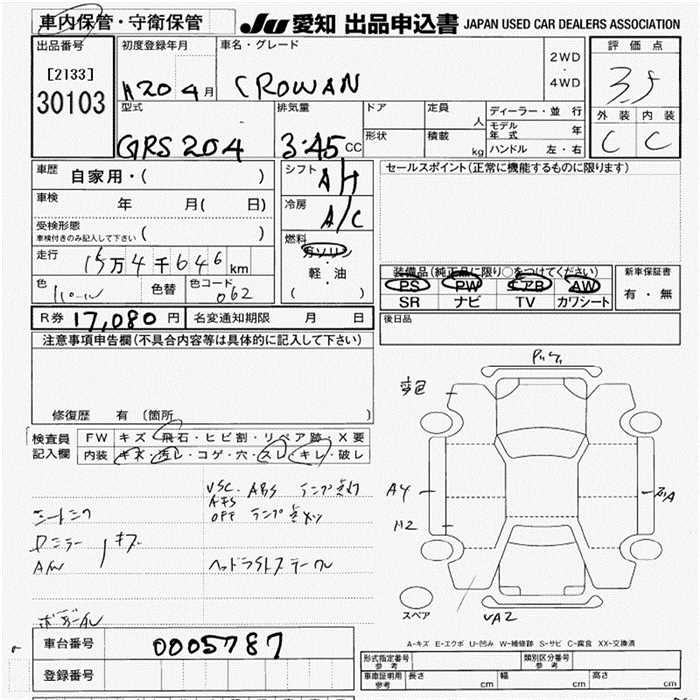 車内保管・守衛保管 JU 愛知 出品申込書 JAPAN USED CAR DEALERS ASSOCIATION
出品番号 初度登録年月 車名・グレード 2WD ・ 4WD 評価点
[2133]
30103
H20年4月 CROWAN 3.5
型式 排気量 ドア 定員 人 ディーラー・並行 外装 内装
GRS204 3.45CC 形状 積載 kg モデル年式 年 C C
ハンドル 左・右
車歴 自家用・( ) シフト AH セールスポイント(正常に機能するものに限ります)
車検 年 月( 日) 冷房 A/C
受検形態
車検付きのみ記入して下さい ( )
燃料 ガソリン
・
軽・油
( )
走行 15万4千646km
装備品(純正品に限り○をつけてください) 新車保証書
PS PW エアB AW 有・無
SR ナビ TV カワシート
色 パール 色替 色コード 062
R券 17,080円 名変通知期限 月 日 後日品
注意事項申告欄(不具合内容等は具体的に記入して下さい)
修復歴 有(箇所 )
検査員記入欄 FW キズ・飛石・ヒビ割・リペア跡・X要
内装 キズ・汚レ・コゲ・穴・スレ・キレ・破レ
VSC. ABS ランプ点灯
A4
A/W キズ
ヘッドライトスチール
スペア
A-キズ E-エクボ U-凹み W-補修跡 S-サビ C-腐食 XX-交換済
車台番号 0005787
登録番号
形式指定番号 参考 類別区分番号 参考
車庫証明用 参考 長さ cm 幅 cm 高さ cm